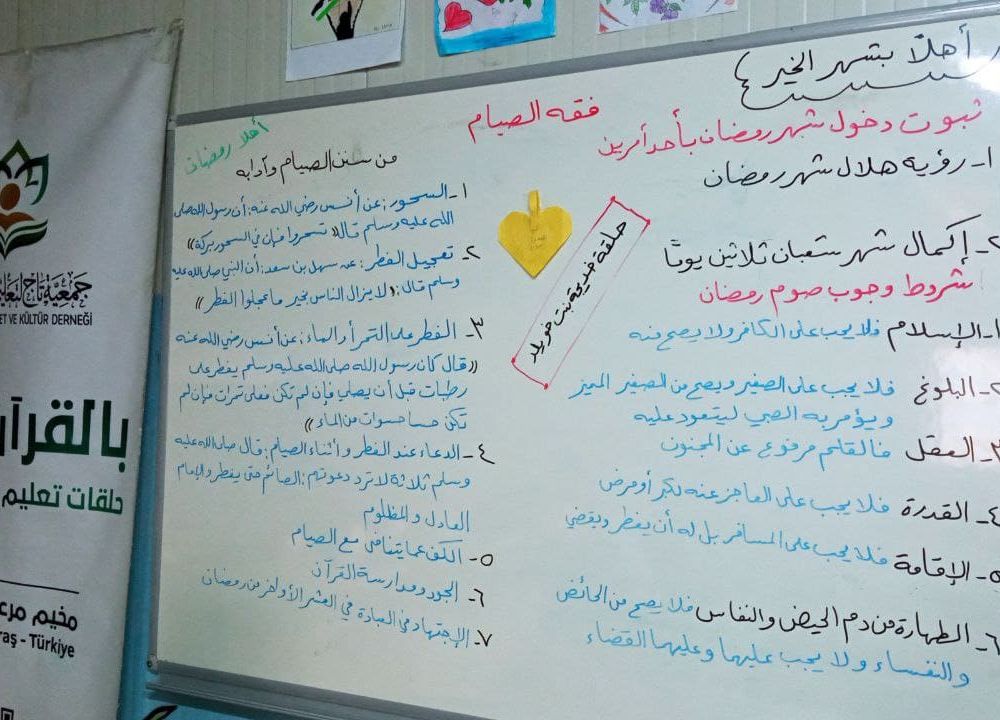 أهلاً بشهر الخير
فقه الصيام
ثبوت دخول شهر رمضان بأحد أمرين
١- رؤية هلال شهر رمضان
٢- إكمال شهر شعبان ثلاثين يومًا
شروط وجوب صوم رمضان
١- الإسلام فلا يجب على الكافر ولا يصح منه
٢- البلوغ فلا يجب على الصغير ويصح من الصغير المميز
ويؤمر به الصبي ليتعود عليه
٣- العقل فالقلم مرفوع عن المجنون
٤- القدرة فلا يجب على العاجز عنه لكبر أو مرض
٥- الإقامة فلا يجب على المسافر بل له أن يفطر ويقضي
٦- الطهارة من دم الحيض والنفاس فلا يصح من الحائض
والنفساء ولا يجب عليهما وعليهما القضاء
حلقة خديجة بنت خويلد
أهلا رمضان
من سنن الصيام وآدابه
١- السحور: عن أنس رضي الله عنه: أن رسول الله صلى
الله عليه وسلم قال (( تسحروا فإن في السحور بركة ))
٢- تعجيل الفطر: عن سهل بن سعد: أن النبي صلى الله عليه
وسلم قال: (( لا يزال الناس بخير ما عجلوا الفطر ))
٣- الفطر على التمر أو الماء: عن أنس رضي الله عنه
(( قال كان رسول الله صلى الله عليه وسلم يفطر على
رطبات قبل أن يصلي فإن لم تكن فعلى تمرات فإن لم
تكن حسا حسوات من الماء ))
٤- الدعاء عند الفطر وأثناء الصيام: قال صلى الله عليه
وسلم ثلاثة لا ترد دعوتهم: الصائم حتى يفطر والإمام
العادل والمظلوم
٥- الكف عما يتنافى مع الصيام
٦- الجود ومدارسة القرآن
٧- الإجتهاد في العبادة في العشر الأواخر من رمضان
جمعية تاج
ET VE KÜLTÜR DERNEĞİ
بالقرآن
حلقات تعليم
مخيم
aş - Türkiye